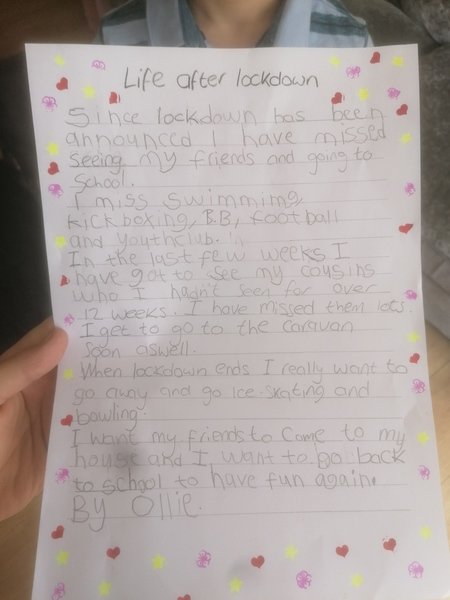 Life after lockdown
Since lockdown has been
announced I have missed
seeing my friends and going to
School.
I miss swimming,
Kickboxing, B.B, football
and youthclub.
In the last few weeks I
have got to see my cousins
who I hadn't seen for over
12 weeks. I have missed them lots.
I get to go to the caravan
soon aswell.
When lockdown ends I really want to
go away and go ice-skating and
bowling
I want my friends to come to my
house and I want to go back
to school to have fun again.
By Ollie.